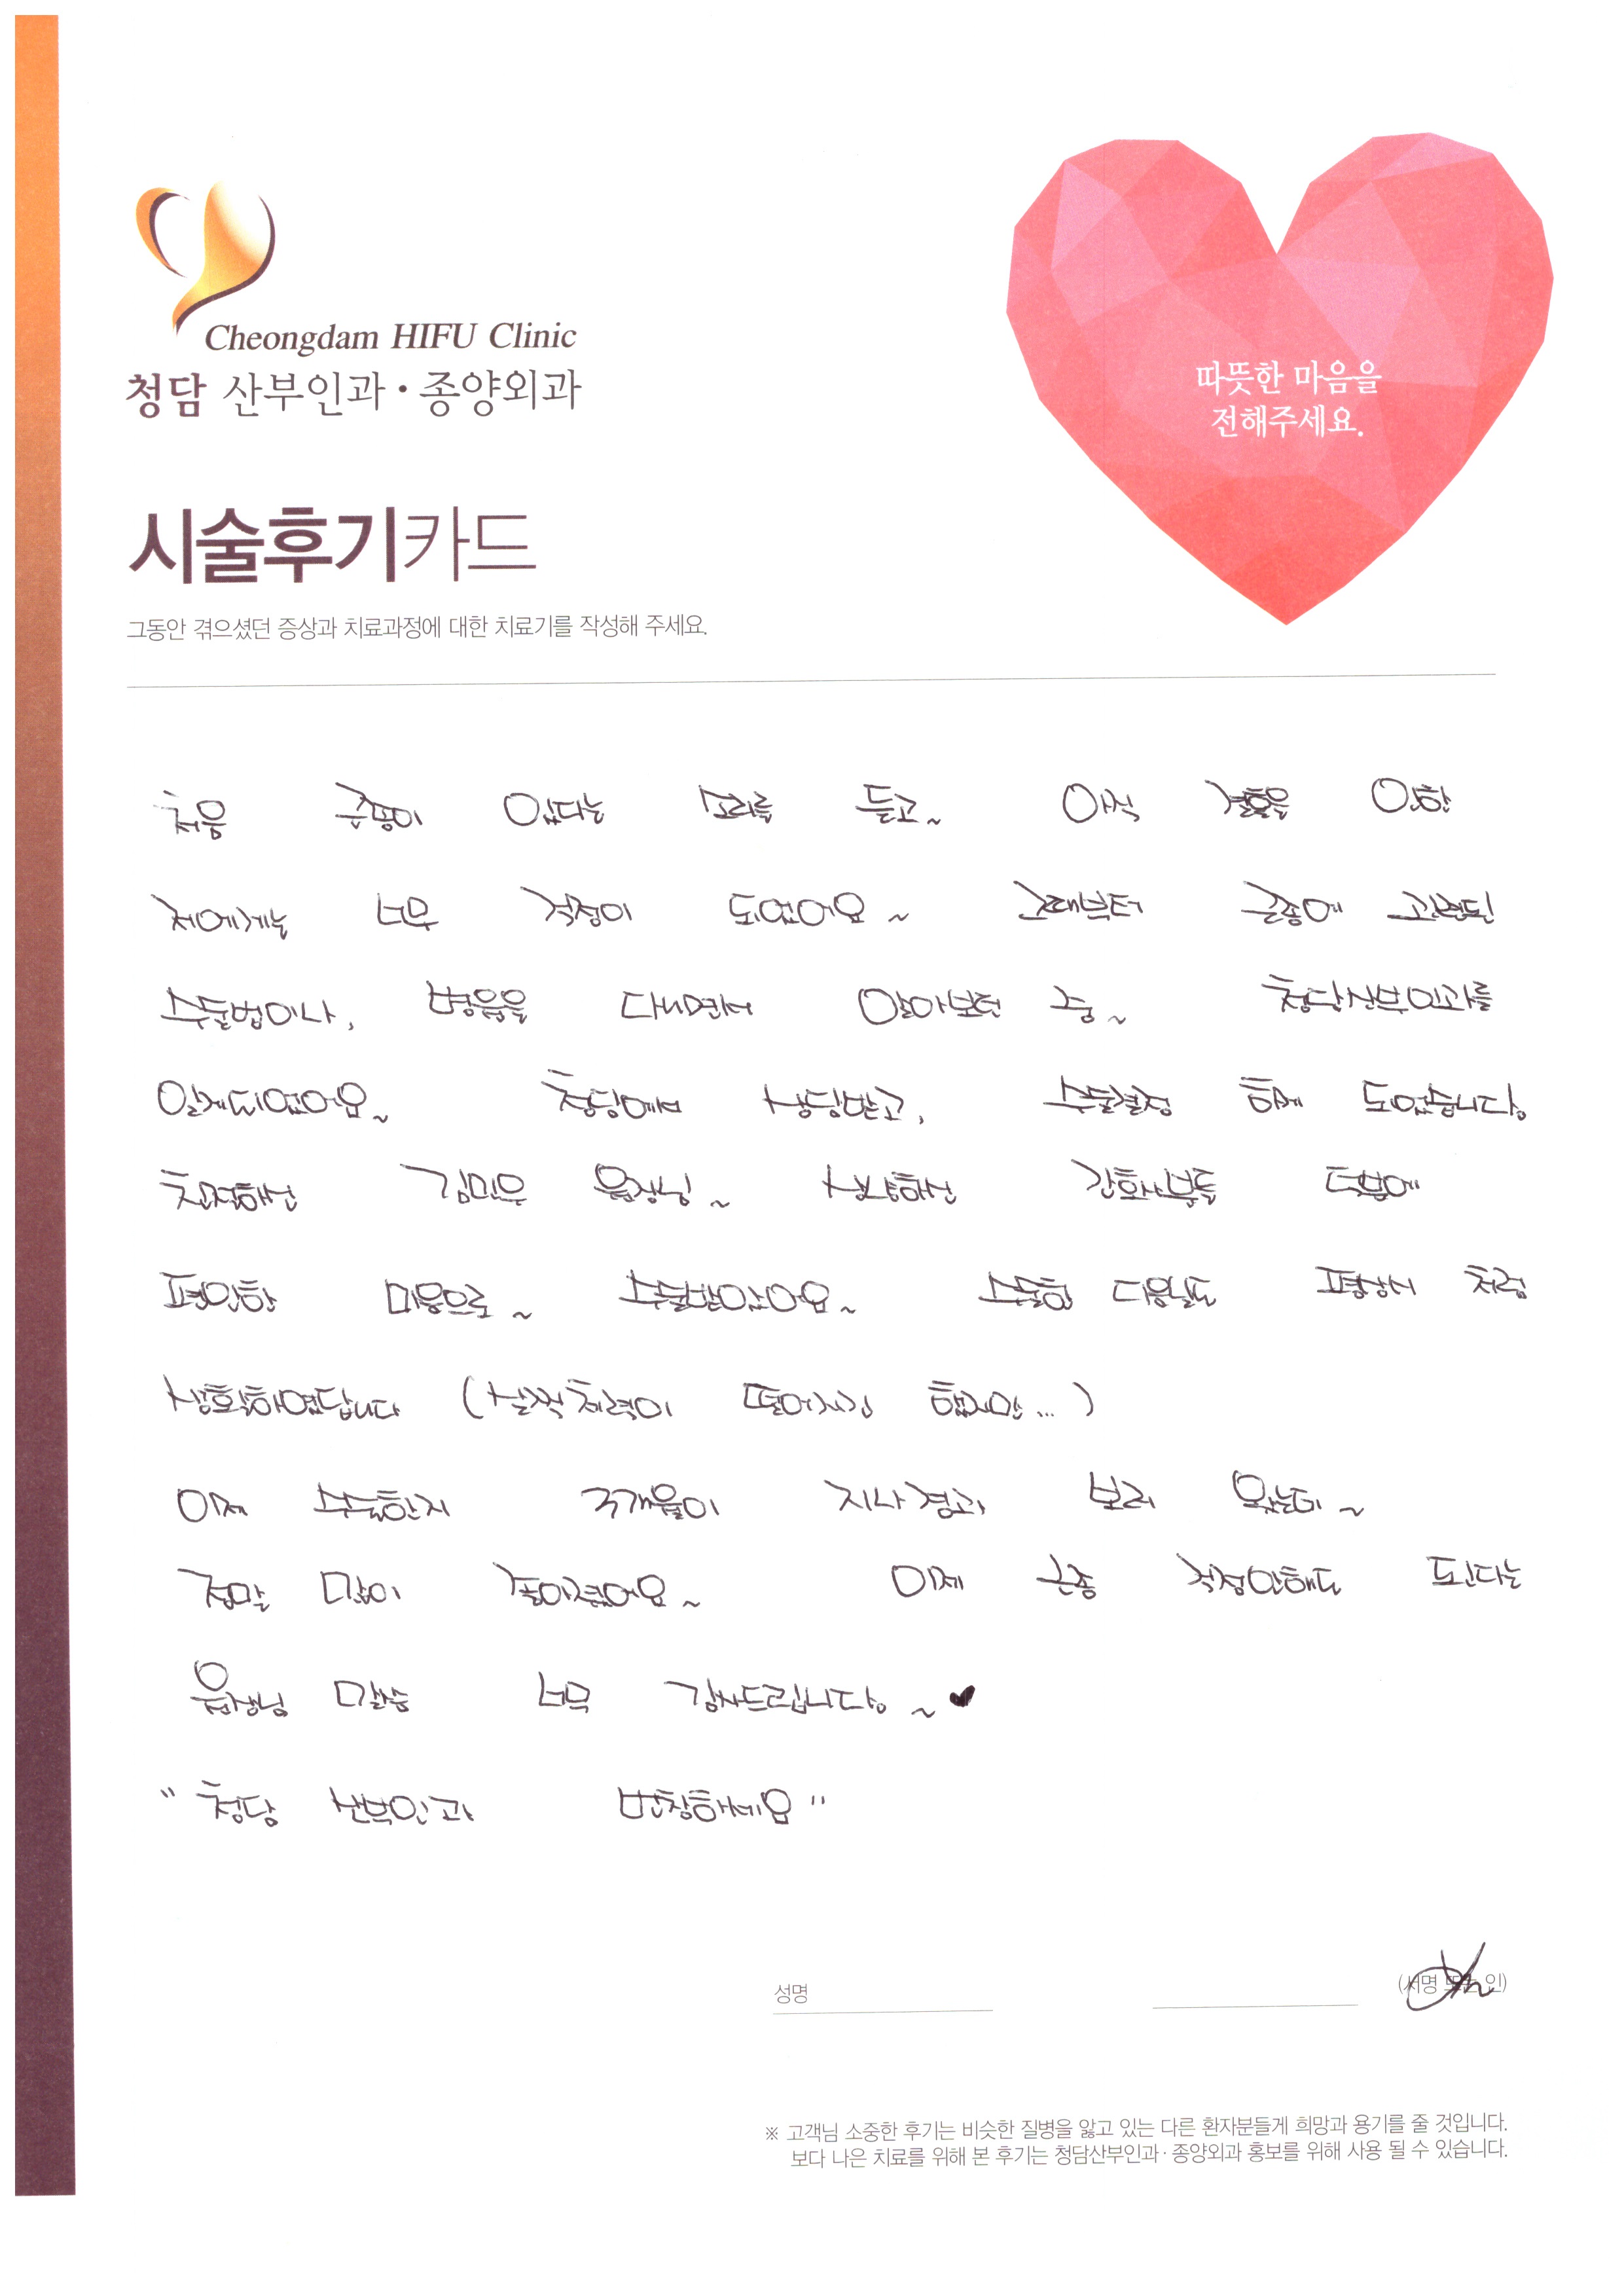 Cheongdam HIFU Clinic
청담 산부인과·종양외과
따뜻한 마음을
전해주세요.
시술후기카드
그동안 겪으셨던 증상과 치료과정에 대한 치료기를 작성해 주세요.
처음 근종이 있다는 소리를 듣고~ 아직 결혼을 안한
저에게는 너무 걱정이 되었어요~ 그때부터 근종에 관련된
수술법이나, 병원을 다니면서 알아보던 중~ 청담산부인과를
알게되었어요~ 청담에서 상담받고, 수술결정 하게 되었습니다.
친절하신 김민우 원장님~ 상냥하신 간호사분들 덕분에
편안한 마음으로~ 수술받았어요~ 수술한 다음날도 평상시 처럼
생활하였답니다 (살짝 체력이 떨어지긴 했지만...)
이제 수술한지 3개월이 지나 경과 보러 왔는데~
정말 많이 줄어졌어요~ 이제 근종 걱정안해도 된다는
원장님 말씀 너무 감사드립니다.~♥
"청담 산부인과 번창하세요"
성명
(서명 또는 인)
※ 고객님 소중한 후기는 비슷한 질병을 앓고 있는 다른 환자분들게 희망과 용기를 줄 것입니다.
보다 나은 치료를 위해 본 후기는 청담산부인과·종양외과 홍보를 위해 사용 될 수 있습니다.